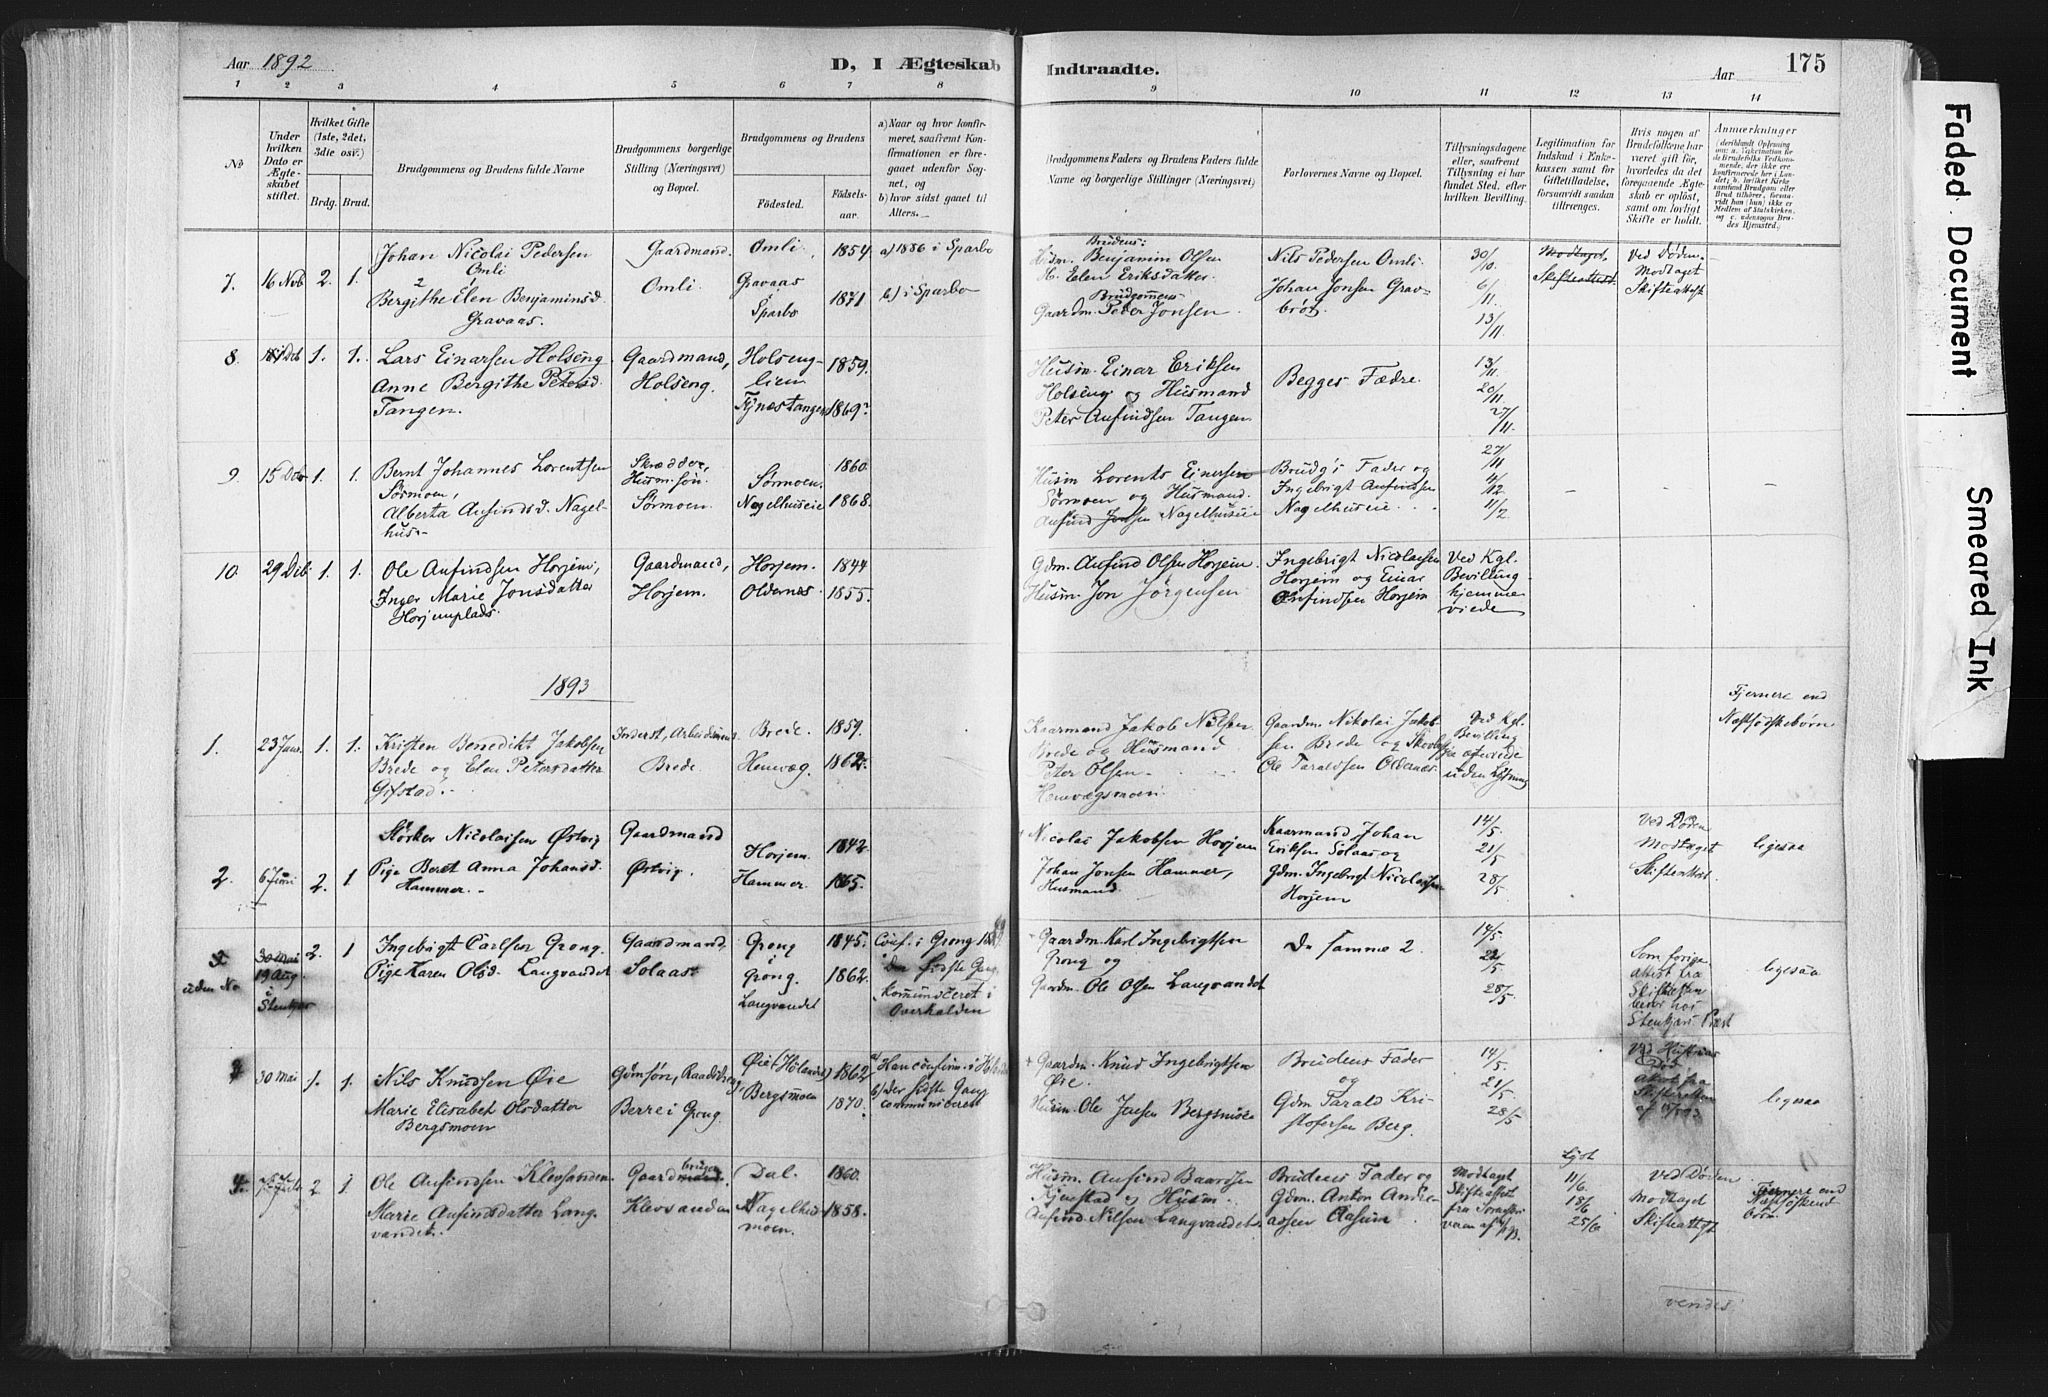 Aar 1892
D, I Ægteskab Indtraadte.
Aar
175
1 2 3 4 5 6 7 8 9 10 11 12 13 14
No
Under hvilken Dato er Ægteskabet stiftet.
Hvilket Gifte (1ste, 2det, 3die osv.)
Brdg. Brud.
Brudgommens og Brudens fulde Navne
Brudgommens borgerlige Stilling (Næringsvei) og Bopæl.
Brudgommens og Brudens
Fødested.
Fødselsaar.
a) Naar og hvor konfirmeret, saafremt Konfirmationen er foregaaet udenfor Sognet, og
b) hvor sidst gaaet til Alters.
Brudgommens Faders og Brudens Faders fulde Navne og borgerlige Stillinger (Næringsvei)
Forlovernes Navne og Bopæl.
Tillysningsdagene eller, saafremt Tillysning ei har fundet Sted, efter hvilken Bevilling.
Legitimation for Indskud i Enkekassen samt for Giftetilladelse, forsaavidt saadan tiltrænges.
Hvis nogen af Brudefolkene har været gift før, hvorledes da det foregaaende Ægteskab er opløst, samt om lovligt Skifte er holdt.
Anmerkninger
7. 16 Nob 2. 1.
Johan Nicolai Pedersen
Omli
Bergithe Elen Benjaminsd.
Gravaas.
Gaardmand.
Omli
Omli
Gravaas
i
Sparbo
1854.
1871
a) 1886 i Sparbo
b) i Sparbo
Brudens:
Husm. Benjamin Olsen
H. Elen Eriksdatter.
Brudgommens
Gaardm. Peder Jonsen.
Nils Pedersen Omli.
Johan Jonsen Gravbrøt.
30/10.
6/11.
13/11.
Modtaget
Skifteattest.
Ved Døden.
Modtaget
Skifteattest
8. 1. 1.
Lars Einarsen Holseng
Anne Bergithe Petersd.
Tangen.
Gaardmand,
Holseng.
Holsenglien
Fynæstangen
1859.
1869.
Husm. Einar Eriksen
Holseng og Husmand
Peter Anfindsen Tangen
Begges Fædre.
13/11.
20/11.
27/11.
9. 15 Deb 1. 1.
Bernt Johannes Lorentsen
Sørmoen,
Alberta Anfindsd. Nagelhus.
Skrædder,
Husm.søn.
Sørmoen.
Sørmoen.
Nagelhuseie
1860
1868.
Husm Lorents Einersen
Sørmoen og Husmand.
Anfind Jonsen Nagelhuseie
Brudg's Fader og
Ingebrigt Anfindsen
Nagelhuseie.
27/11
4/12
11/2
10. 29 Deb 1. 1.
Ole Anfindsen Horjem,
Inger Marie Jonsdatter
Horjemplads
Gaardmand,
Horjem.
Horjem.
Oldernes
1844
1855.
Gdm. Anfind Olsen Horjem.
Husm. Jon Jørgensen
Ingebrigt Nicolaisen
Horjem og Einar
Anfindsen Horjem
Ved Kgl.
Bevilling
hjemmeviede
1893
1. 23 Jan. 1. 1.
Kristen Benedikt Jakobsen
Brede og Elen Petersdatter
Gifstad.
Inderst, Arbeidsmand.
Brede.
Brede.
Hemvæg.
1859.
1862.
Kaarmand Jakob Nilsen
Brede og Husmand
Peter Olsen
Hemvægsmoen.
Gaardm. Nikolai Jakobsen Brede og
Ole Taraldsen Oldernes.
Ved Kgl.
Bevilling
viede
uden Lysning
Fjernere end
Næstsødskebørn
2. 6 Juni 2. 1
Størker Nicolaisen Østvig
Pige Beret Anna Johansd.
Hammer.
Gaardmand
Østvig.
Horjem.
Hammer.
1842.
1865.
Nicolai Jakobsen Horjem
Johan Jonsen Hammer,
Husmand.
Kaarmand Johan
Eriksen Solaas og
Gdm. Ingebrigt Nicolaisen
Horjem
14/5.
21/5
28/5.
Ved Døden
Modtaget
Skifteattest.
ligesaa
uden No
30 Mai
19 Aug.
i
Stenkjær
2. 1
Ingebrigt Carlsen Grong.
Pige Karen Olsd. Langvandet
Gaardmand.
Solaas.
Grong
i
Grong.
Langvandet
1845.
1862.
Conf. i Grong
Den sidste Gang
kommuniceret i
Overhalden
Gaardm. Karl Ingebrigtsen
Grong og
Gaardm. Ole Olsen Langvandet
De samme 2.
14/5.
22/5
28/5
Som forige
attest fra
Skifteretten
beror hos
Stenkjær Præst
ligesaa
30 Mai 1. 1.
Nils Knudsen Øie
Marie Elisabet Olsdatter
Bergsmoen
Gdmsøn, Raadsdreng
Berre i Grong.
Øie (Hølandet)
Bergsmoen
1862
1870.
a) Han confirm. i
b) der sidste Gang
communiceret
Gaardm. Knud Ingebrigtsen
Øie.
Husm. Ole Jensen Bergsmoen
Brudens Fader
og
Gdm. Tarald Kristofersen Berg.
14/5.
21/5.
28/5
Ved Hustruens
Død
Skifteretten
ligesaa
2. 1.
Ole Anfindsen Klevsanden
Marie Anfindsdatter Langvandet.
Gaardbruger
Klevsanden
Dal.
Nagelhusmoen.
1860.
1858.
Husm. Anfind Baardsen
Fynestad og Husm.
Anfind Nilsen Langvandet
Brudens Fader og
Gdm. Anton Andreassen Aasum.
Modtaget
Skifteattest
Lyst
11/6.
18/6
25/6
Ved Døden
Modtaget
Skifteattest
Fjernere end
Næstsødskendbørn
vendes
Faded Document
Smeared Ink